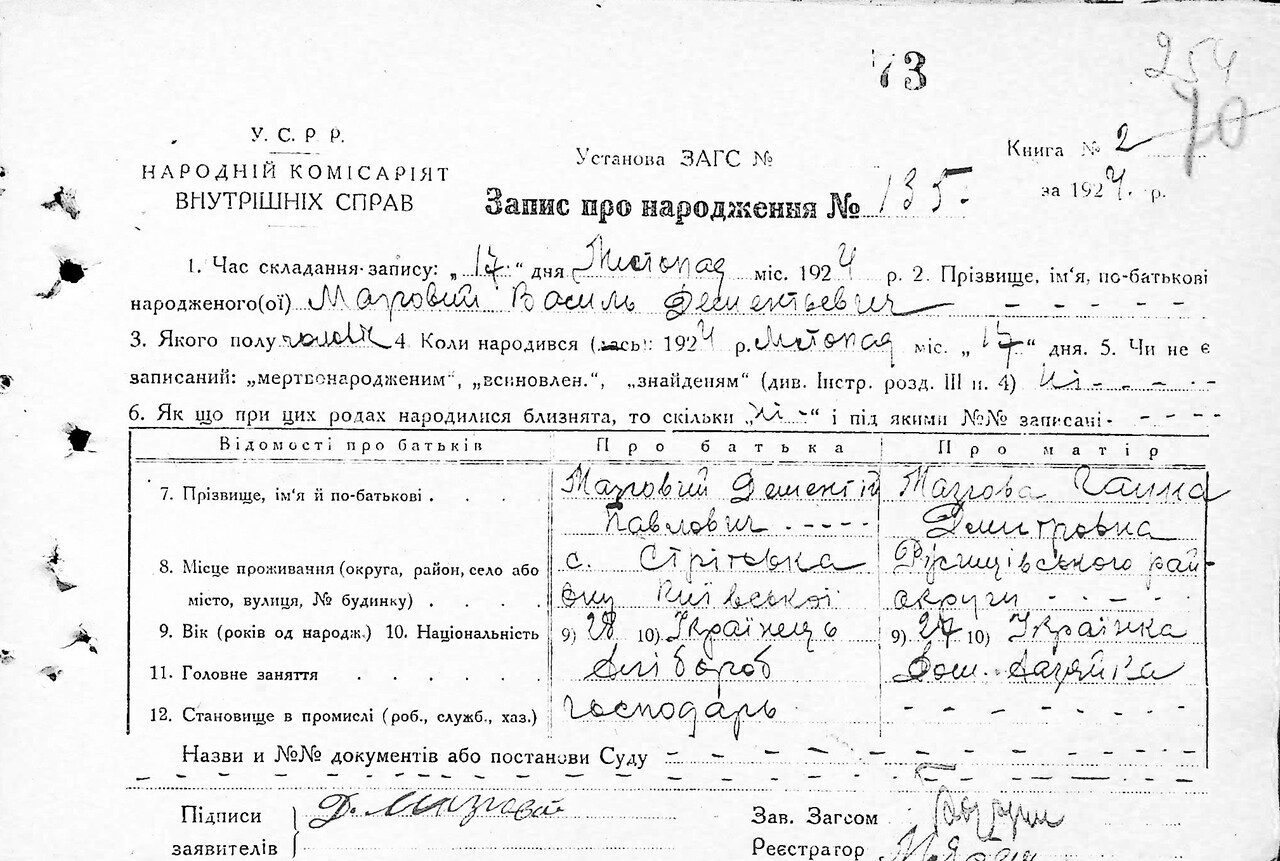 73
254
70
У. С. Р. Р.
НАРОДНІЙ КОМІСАРІЯТ
ВНУТРІШНІХ СПРАВ
Установа ЗАГС №
Книга № 2
за 1924 р.
Запис про народження № 135.
1. Час складання запису: „17“ дня Листопад міс. 1924 р. 2. Прізвище, ім'я, по-батькові
народженого(ої) Мазговий Василь Дементьевич
3. Якого полу чоловік 4. Коли народився (лась): 1924 р. Листопад міс. „17“ дня. 5. Чи не є
записаний: „мертвонародженим“, „всиновлен.“, „знайденям“ (див. Інстр. розд. III п. 4) Ні - - - -
6. Як що при цих родах народилися близнята, то скільки „Ні -“ і під якими №№ записані - - - - -
Відомості про батьків Про батька Про матір
7. Прізвище, ім'я й по-батькові . . . . Мазговий Дементій Мазгова Ганна
Павлович - - - - - Дмитровна
8. Місце проживання (округа, район, село або с. Стрітовка Ржищівського рай-
місто, вулиця, № будинку) . . . . ону Київської округи - - - -
9. Вік (років од народж.) 10. Національність 9) 28 10) Українець 9) 27 10) Українка
11. Головне заняття . . . . . . Хлібороб Дом. Хазяйка
12. Становище в промислі (роб., служб., хаз.) господарь - - - - - - - -
Назви и №№ документів або постанови Суду - - - - - - - - - - - - - - -
Підписи Д. Мазговой Зав. Загсом
заявителів Реєстратор